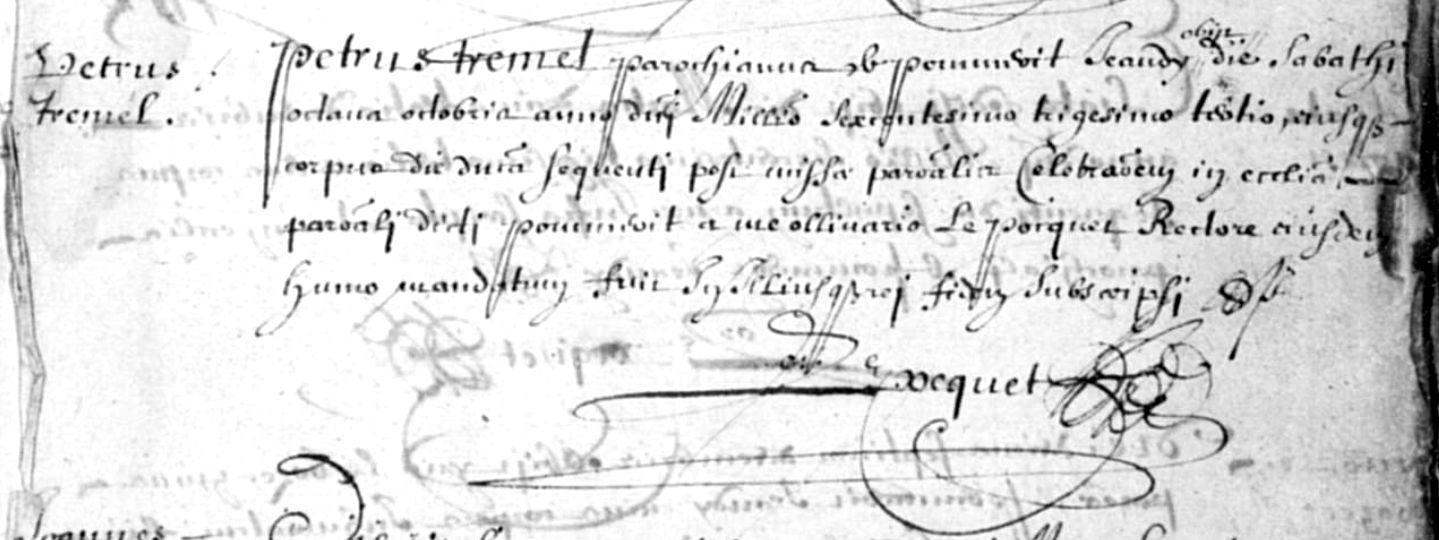 Petrus
tremel.
Petrus tremel parochianus de pommerit Jeaudy obijt die Sabathi
octava octobris anno dnj Millmo Sexcentesimo trigesimo tertio, eiusqz
corpus die dnica sequenti post missa paroalis Celebraoem in ecclia
paroali dicti pommerit a me ollivario Le pezquet Rectore eiusdem
humo mandatum fuit In Illiusqz rei fidem Subscripsi
pezquet
Joannes